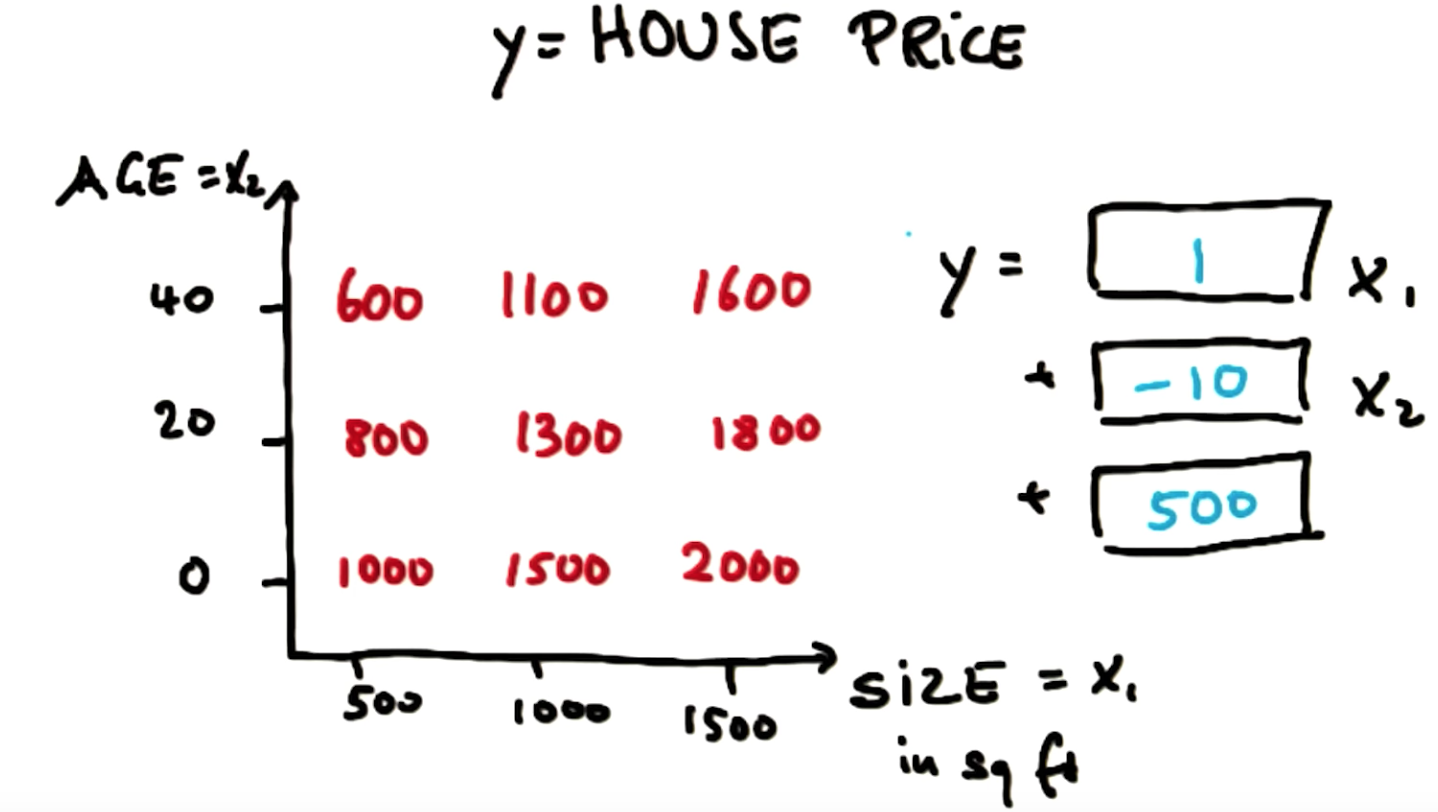 y = HOUSE PRiCE
AGE = x₂
40 600 1100 1600
20 800 1300 1800
0 1000 1500 2000
500 1000 1500
SiZE = x₁
in sq ft
y = 1 x₁
+ -10 x₂
+ 500